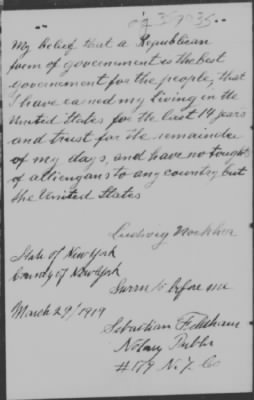 My belief that a Republican
form of government is the best
government for the people, that
I have earned my living in the
United States for the last 14 years
and trust for the remainder
of my days, and have no toughts
of alliengans to any country but
the United States
Ludwig
State of New York
County of New York
Sworn to before me
March 29/1919
Sebastian
Notary Public
N.Y. Co